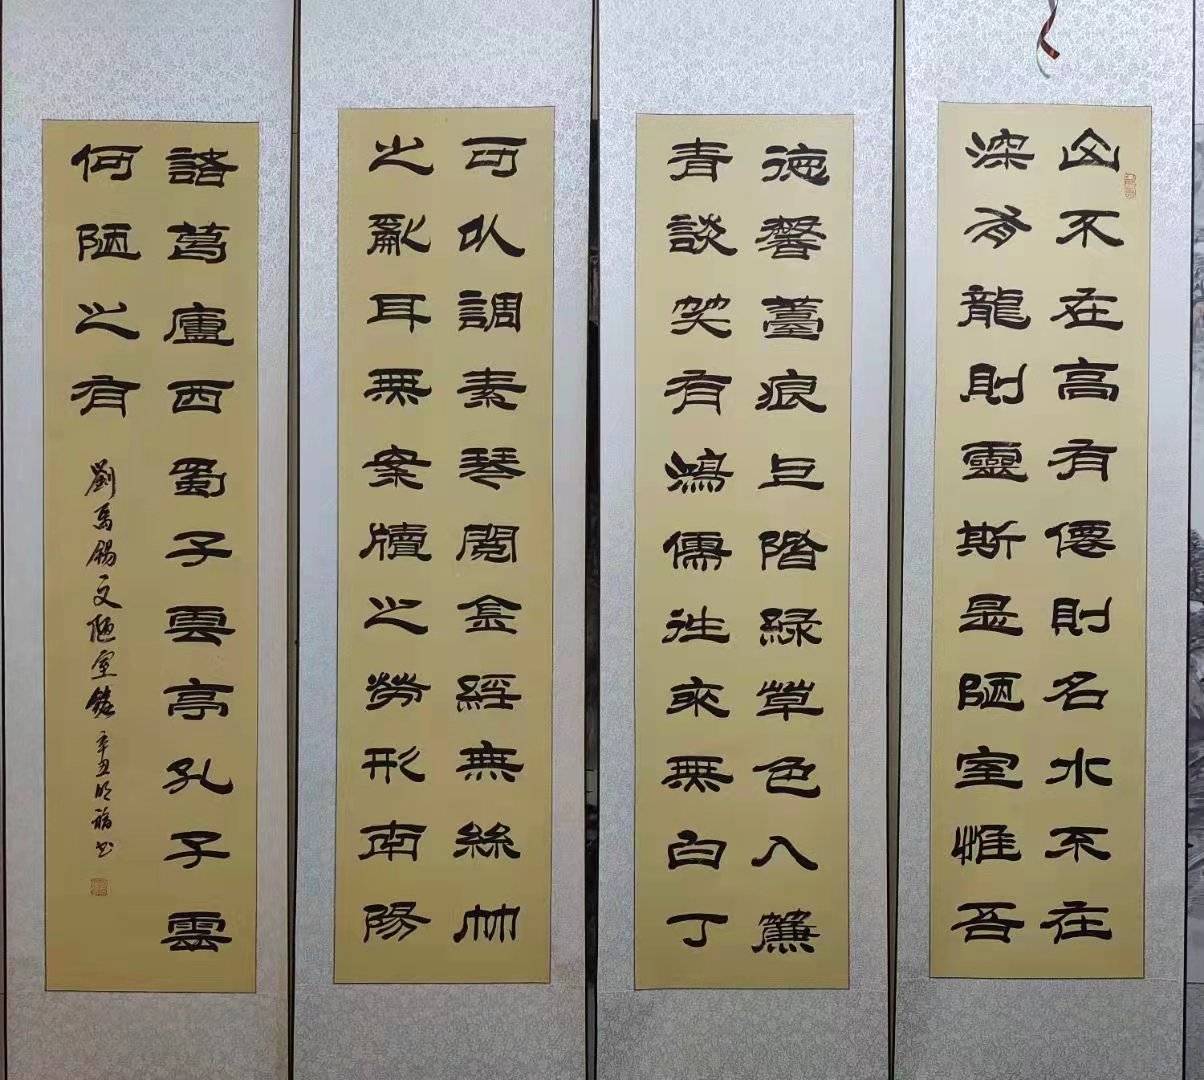 山不在高有僊則名水不在
深有龍則靈斯是陋室惟吾
德馨薹痕上階緑草色入簾
青談笑有鴻儒往來無白丁
可以調素琴閲金經無絲竹
之亂耳無案牘之勞形南陽
諸葛廬西蜀子雲亭孔子雲
何陋之有
劉禹錫文陋室銘辛丑明福书